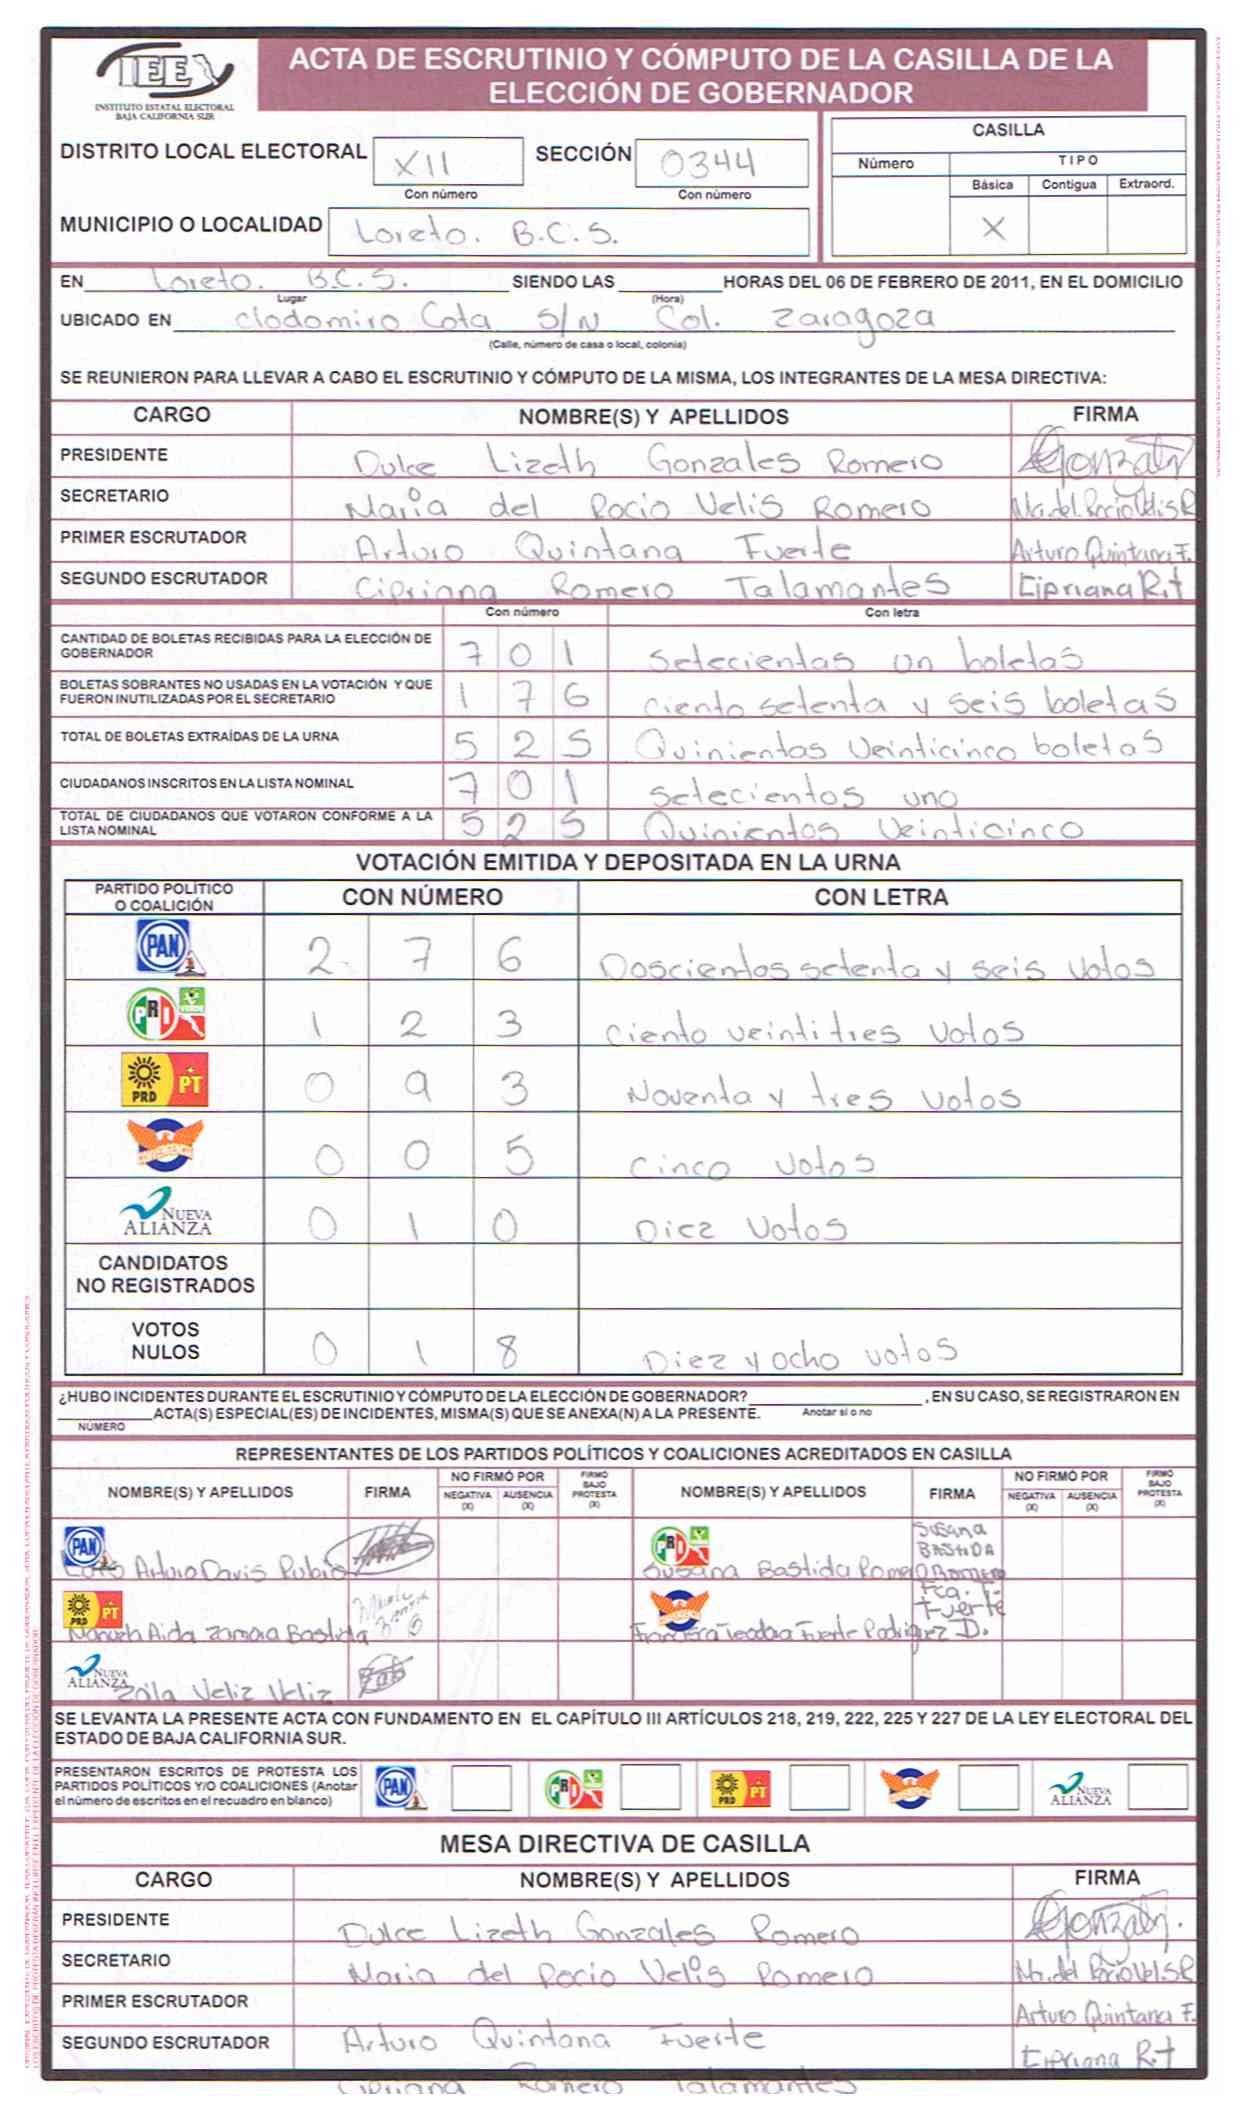 ACTA DE ESCRUTINIO Y CÓMPUTO DE LA CASILLA DE LA
ELECCIÓN DE GOBERNADOR
IEE
INSTITUTO ESTATAL ELECTORAL
BAJA CALIFORNIA SUR
DISTRITO LOCAL ELECTORAL XII SECCIÓN 0344
Con número Con número
MUNICIPIO O LOCALIDAD Loreto. B.C.S.
CASILLA
Número TIPO
Básica Contigua Extraord.
X
EN Loreto. B.C.S. SIENDO LAS HORAS DEL 06 DE FEBRERO DE 2011, EN EL DOMICILIO
Lugar (Hora)
UBICADO EN clodomiro Cota S/N Col. Zaragoza
(Calle, número de casa o local, colonia)
SE REUNIERON PARA LLEVAR A CABO EL ESCRUTINIO Y CÓMPUTO DE LA MISMA, LOS INTEGRANTES DE LA MESA DIRECTIVA:
CARGO NOMBRE(S) Y APELLIDOS FIRMA
PRESIDENTE Dulce Lizeth Gonzales Romero
SECRETARIO Maria del Rocio Velis Romero Ma. del Rocio Velis R
PRIMER ESCRUTADOR Arturo Quintana Fuerte Arturo Quintana F.
SEGUNDO ESCRUTADOR Cipriana Romero Talamantes Cipriana R.t
Con número Con letra
CANTIDAD DE BOLETAS RECIBIDAS PARA LA ELECCIÓN DE
GOBERNADOR 7 0 1 setecientas un boletas
BOLETAS SOBRANTES NO USADAS EN LA VOTACIÓN Y QUE
FUERON INUTILIZADAS POR EL SECRETARIO 1 7 6 ciento setenta y seis boletas
TOTAL DE BOLETAS EXTRAÍDAS DE LA URNA 5 2 5 Quinientas Veinticinco boletas
CIUDADANOS INSCRITOS EN LA LISTA NOMINAL 7 0 1 setecientos uno
TOTAL DE CIUDADANOS QUE VOTARON CONFORME A LA
LISTA NOMINAL 5 2 5 Quinientos Veinticinco
VOTACIÓN EMITIDA Y DEPOSITADA EN LA URNA
PARTIDO POLÍTICO
O COALICIÓN CON NÚMERO CON LETRA
PAN 2 7 6 Doscientos setenta y seis votos
PRI VERDE 1 2 3 ciento veintitres votos
PRD PT 0 9 3 Noventa y tres votos
CONVERGENCIA 0 0 5 cinco votos
NUEVA ALIANZA 0 1 0 Diez votos
CANDIDATOS
NO REGISTRADOS
VOTOS
NULOS 0 1 8 Diez y ocho votos
¿HUBO INCIDENTES DURANTE EL ESCRUTINIO Y CÓMPUTO DE LA ELECCIÓN DE GOBERNADOR? , EN SU CASO, SE REGISTRARON EN
ACTA(S) ESPECIAL(ES) DE INCIDENTES, MISMA(S) QUE SE ANEXA(N) A LA PRESENTE. Anotar sí o no
NÚMERO
REPRESENTANTES DE LOS PARTIDOS POLÍTICOS Y COALICIONES ACREDITADOS EN CASILLA
NOMBRE(S) Y APELLIDOS FIRMA NO FIRMÓ POR NEGATIVA (X) AUSENCIA (X) FIRMÓ BAJO PROTESTA (X) NOMBRE(S) Y APELLIDOS FIRMA NO FIRMÓ POR NEGATIVA (X) AUSENCIA (X) FIRMÓ BAJO PROTESTA (X)
PAN Arturo Davis Rubio PRI Susana Bastida Romero SUSANA BASTIDA ROMERO
PRD PT Manuela Aida Zamora Bastida CONVERGENCIA Francisca Teodora Fuerte Rodriguez Fca. T. Fuerte D.
NUEVA ALIANZA Zoila Veliz Veliz
SE LEVANTA LA PRESENTE ACTA CON FUNDAMENTO EN EL CAPÍTULO III ARTÍCULOS 218, 219, 222, 225 Y 227 DE LA LEY ELECTORAL DEL
ESTADO DE BAJA CALIFORNIA SUR.
PRESENTARON ESCRITOS DE PROTESTA LOS
PARTIDOS POLÍTICOS Y/O COALICIONES (Anotar
el número de escritos en el recuadro en blanco) PAN PRI PRD PT CONVERGENCIA NUEVA ALIANZA
MESA DIRECTIVA DE CASILLA
CARGO NOMBRE(S) Y APELLIDOS FIRMA
PRESIDENTE Dulce Lizeth Gonzales Romero
SECRETARIO Maria del Rocio Velis Romero
PRIMER ESCRUTADOR Arturo Quintana F.
SEGUNDO ESCRUTADOR Arturo Quintana Fuerte Cipriana R.t
Cipriana Romero Talamantes